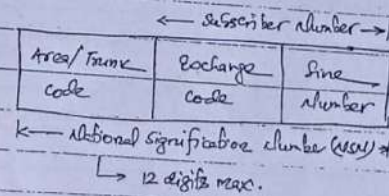 ← Subscriber Number →
Area/Trunk code
Exchange code
Line Number
← National Signification Number (NSN) →
↳ 12 digits max.